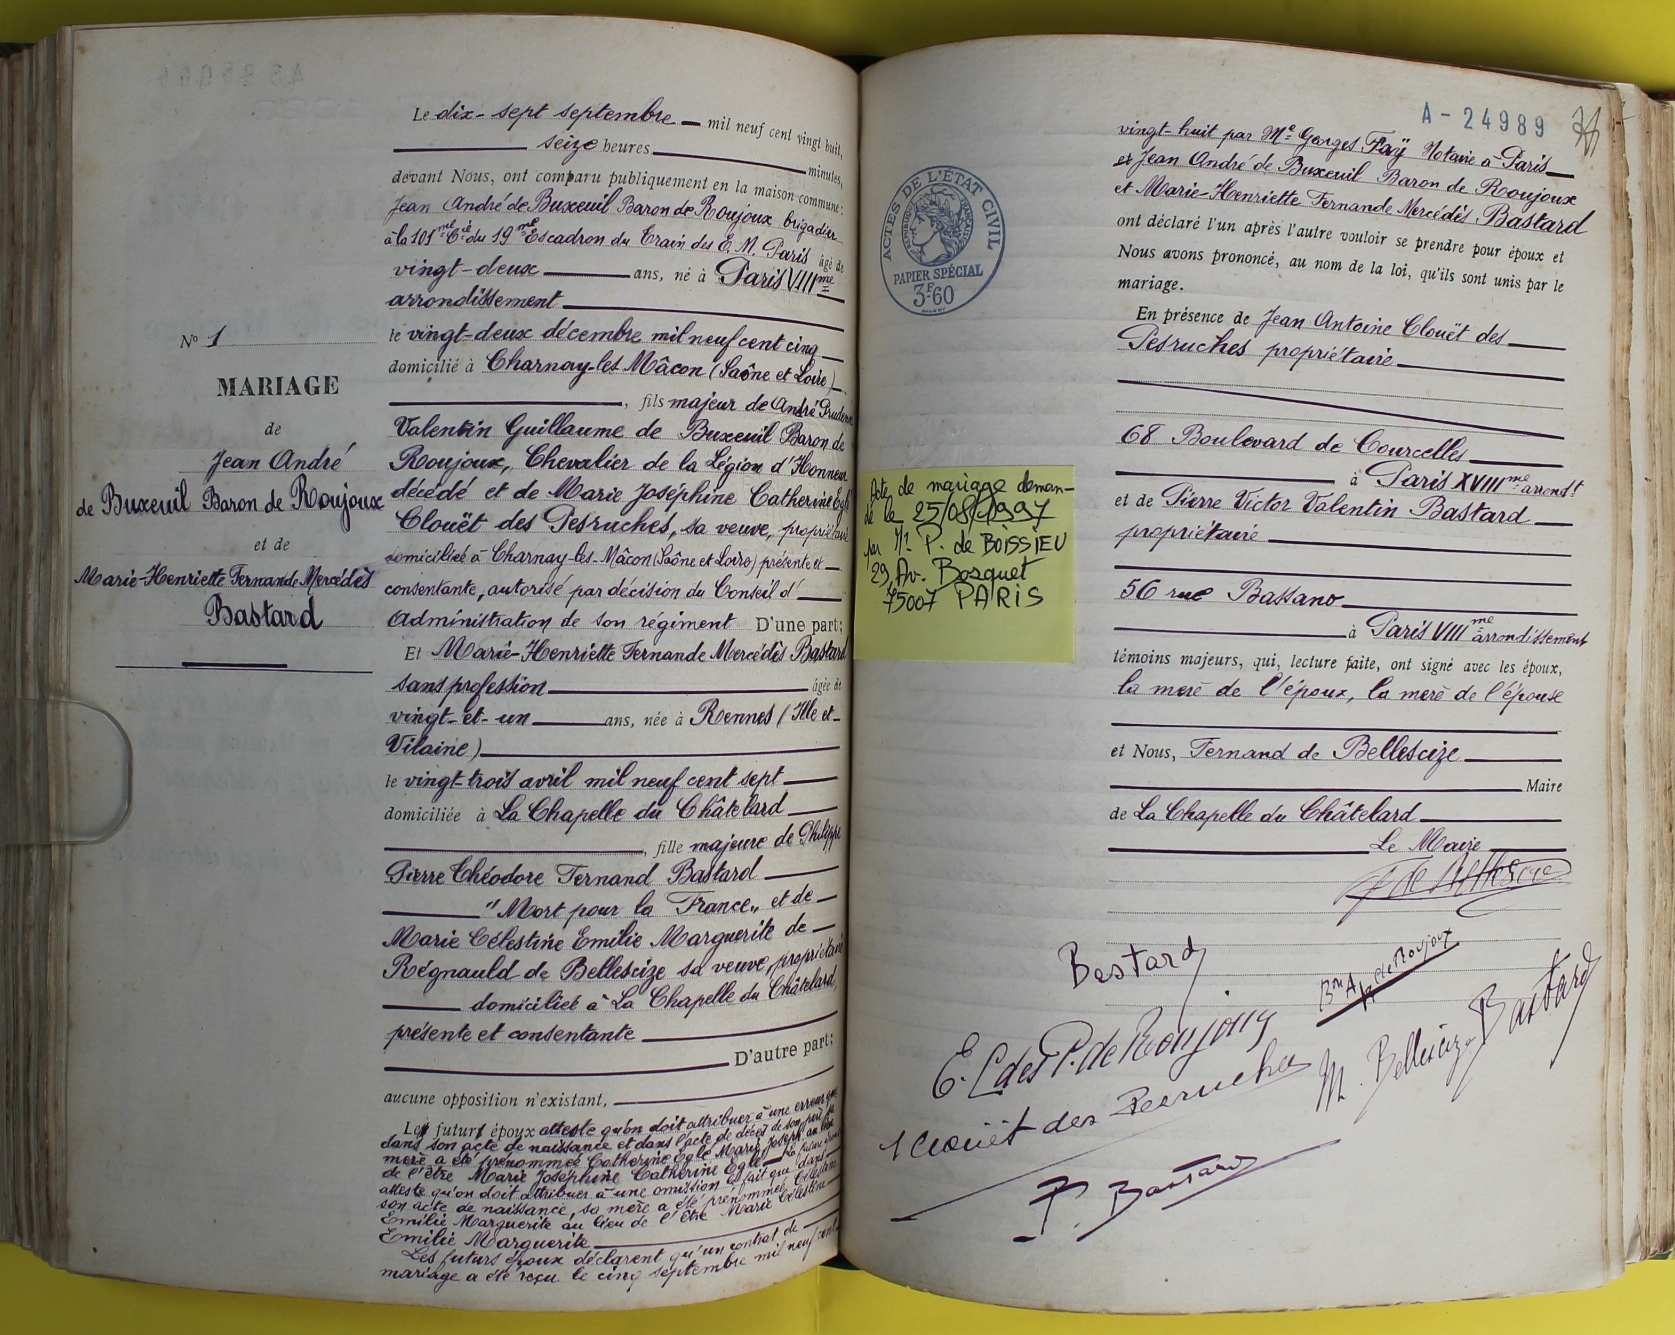 Le dix-sept septembre mil neuf cent vingt huit,
seize heures minutes,
devant Nous, ont comparu publiquement en la maison commune:
Jean André de Buxeuil Baron de Roujoux brigadier
à la 101me Cie du 19me Escadron du Train des E. M. Paris âgé de
vingt-deux ans, né à Paris VIIIme
arrondissement
le vingt-deux décembre mil neuf cent cinq
domicilié à Charnay-les Mâcon (Saône et Loire)
, fils majeur de André Prudent
Valentin Guillaume de Buxeuil Baron de
Roujoux, Chevalier de la Légion d'Honneur
décédé et de Marie Joséphine Catherine Eglé
Clouët des Pesruches, sa veuve, propriétaire
domiciliée à Charnay-les-Mâcon (Saône et Loire) présente et
consentante, autorisé par décision du Conseil d'
Administration de son régiment D'une part;
Et Marie-Henriette Fernande Mercédès Bastard
sans profession âgée de
vingt-et-un ans, née à Rennes (Ille et-
Vilaine)
le vingt-trois avril mil neuf cent sept
domiciliée à La Chapelle du Châtelard
, fille majeure de Philippe
Pierre Théodore Fernand Bastard
"Mort pour la France" et de
Marie Célestine Emilie Marguerite de
Régnauld de Bellescize sa veuve, propriétaire
domiciliée à La Chapelle du Châtelard,
présente et consentante
D'autre part;
aucune opposition n'existant,
Le futur époux atteste qu'on doit attribuer à une erreur que
dans son acte de naissance et dans l'acte de décès de son père sa
mère a été prénommée Catherine Eglé Marie Joseph au lieu
de l'être Marie Joséphine Catherine Eglé La future épouse
atteste qu'on doit attribuer à une omission le fait que dans
son acte de naissance, sa mère a été prénommée Célestine
Emilie Marguerite au lieu de l'être Marie Célestine
Emilie Marguerite
Les futurs époux déclarent qu'un contrat de
mariage a été reçu le cinq septembre mil neuf cent
No 1
MARIAGE
de
Jean André
de Buxeuil Baron de Roujoux
et de
Marie-Henriette Fernande Mercédès
Bastard
A-24989
ACTES DE L'ÉTAT CIVIL
PAPIER SPÉCIAL
3F60
Acte de mariage deman-
dé le 25/08/1997
par Mr P. de BOISSIEU
29, Av. Bosquet
75007 PARIS
vingt-huit par Me Georges Faÿ Notaire à Paris
et Jean André de Buxeuil Baron de Roujoux
et Marie-Henriette Fernande Mercédès Bastard
ont déclaré l'un après l'autre vouloir se prendre pour époux et
Nous avons prononcé, au nom de la loi, qu'ils sont unis par le
mariage.
En présence de Jean Antoine Clouët des
Pesruches propriétaire
68 Boulevard de Courcelles
à Paris XVIIIme arrondt
et de Pierre Victor Valentin Bastard
propriétaire
56 rue Bassano
à Paris VIIIme arrondissement
témoins majeurs, qui, lecture faite, ont signé avec les époux,
la mère de l'époux, la mère de l'épouse
et Nous, Fernand de Bellescize
Maire
de La Chapelle du Châtelard
Le Maire
F de Bellescize
Bastard
Bon A de Roujoux
E. C des P. de Roujoux
M. Bellescize Bastard
Clouët des Pesruches
P. Bastard